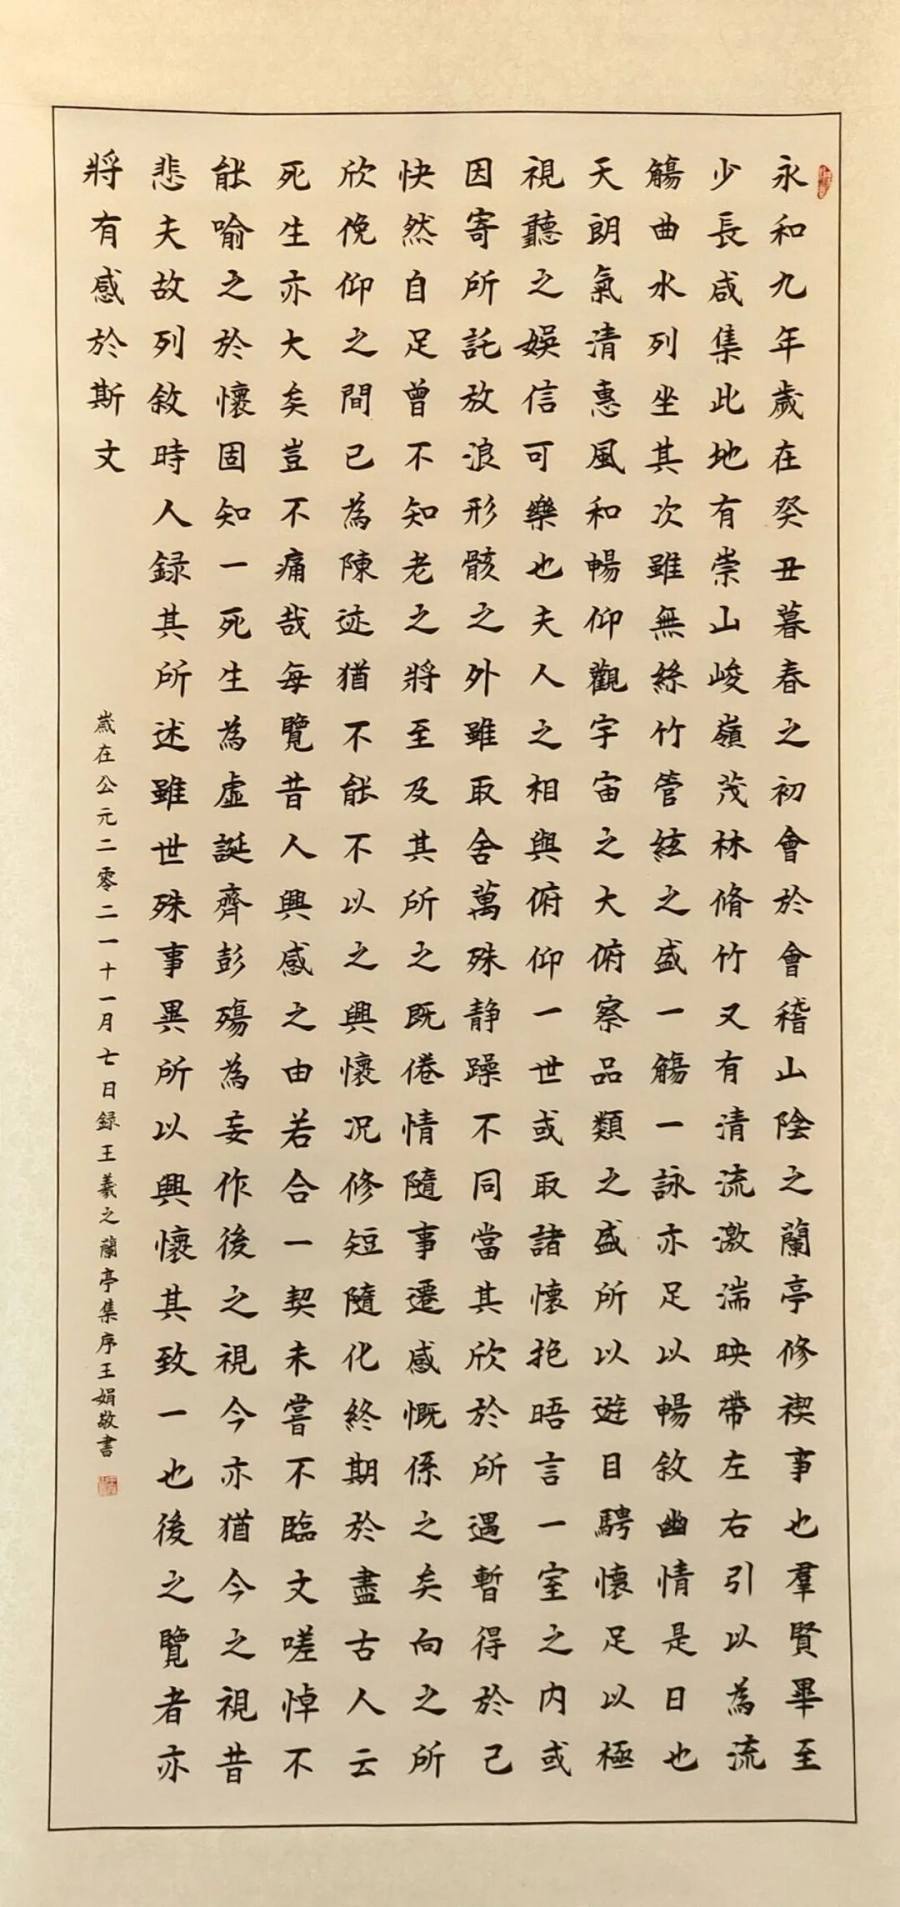 永和九年歲在癸丑暮春之初會於會稽山陰之蘭亭修禊事也羣賢畢至
少長咸集此地有崇山峻嶺茂林脩竹又有清流激湍映帶左右引以為流
觴曲水列坐其次雖無絲竹管絃之盛一觴一詠亦足以暢敘幽情是日也
天朗氣清惠風和暢仰觀宇宙之大俯察品類之盛所以遊目騁懷足以極
視聽之娛信可樂也夫人之相與俯仰一世或取諸懷抱晤言一室之內或
因寄所託放浪形骸之外雖取舍萬殊静躁不同當其欣於所遇暫得於己
快然自足曾不知老之將至及其所之既倦情隨事遷感慨係之矣向之所
欣俛仰之間已為陳迹猶不能不以之興懷况修短隨化終期於盡古人云
死生亦大矣豈不痛哉每覽昔人興感之由若合一契未嘗不臨文嗟悼不
能喻之於懷固知一死生為虛誕齊彭殤為妄作後之視今亦猶今之視昔
悲夫故列敘時人録其所述雖世殊事異所以興懷其致一也後之覽者亦
將有感於斯文
歲在公元二零二一十一月七日録王羲之蘭亭集序王娟敬書